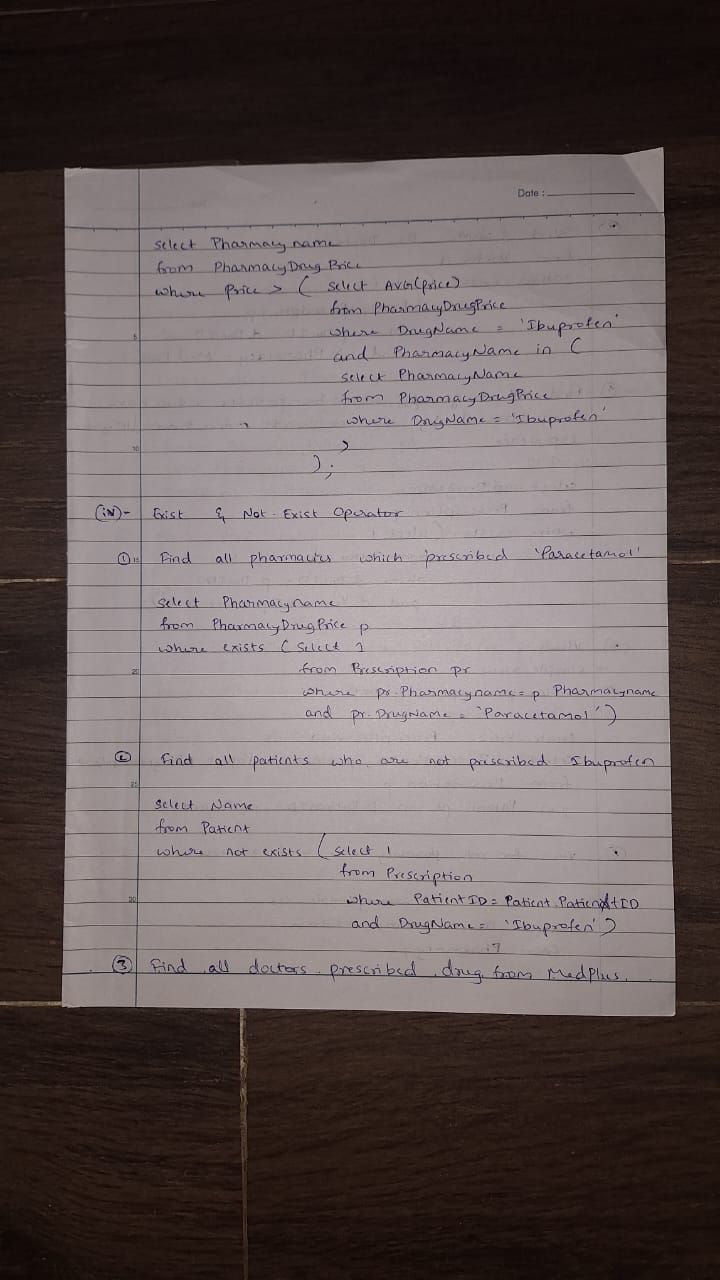 Date :
select Pharmacy name
from PharmacyDrug Price
where Price > ( select AVG(price)
from PharmacyDrugPrice
where DrugName = 'Ibuprofen'
and PharmacyName in (
select PharmacyName
from PharmacyDrugPrice
where DrugName = 'Ibuprofen'
)
);
(iv)- Exist & Not Exist Operator
① Find all pharmacies which prescribed 'Paracetamol'
select Pharmacyname
from PharmacyDrugPrice p
where exists ( select 1
from Prescription pr
where pr.Pharmacyname = p Pharmacyname
and pr. DrugName = 'Paracetamol')
② find all patients who are not priscribed Ibuprofen
select Name
from Patient
where not exists ( select 1
from Prescription
where PatientID = Patient.PatientID
and DrugName = 'Ibuprofen')
③ Find all doctors prescribed drug from MedPlus.